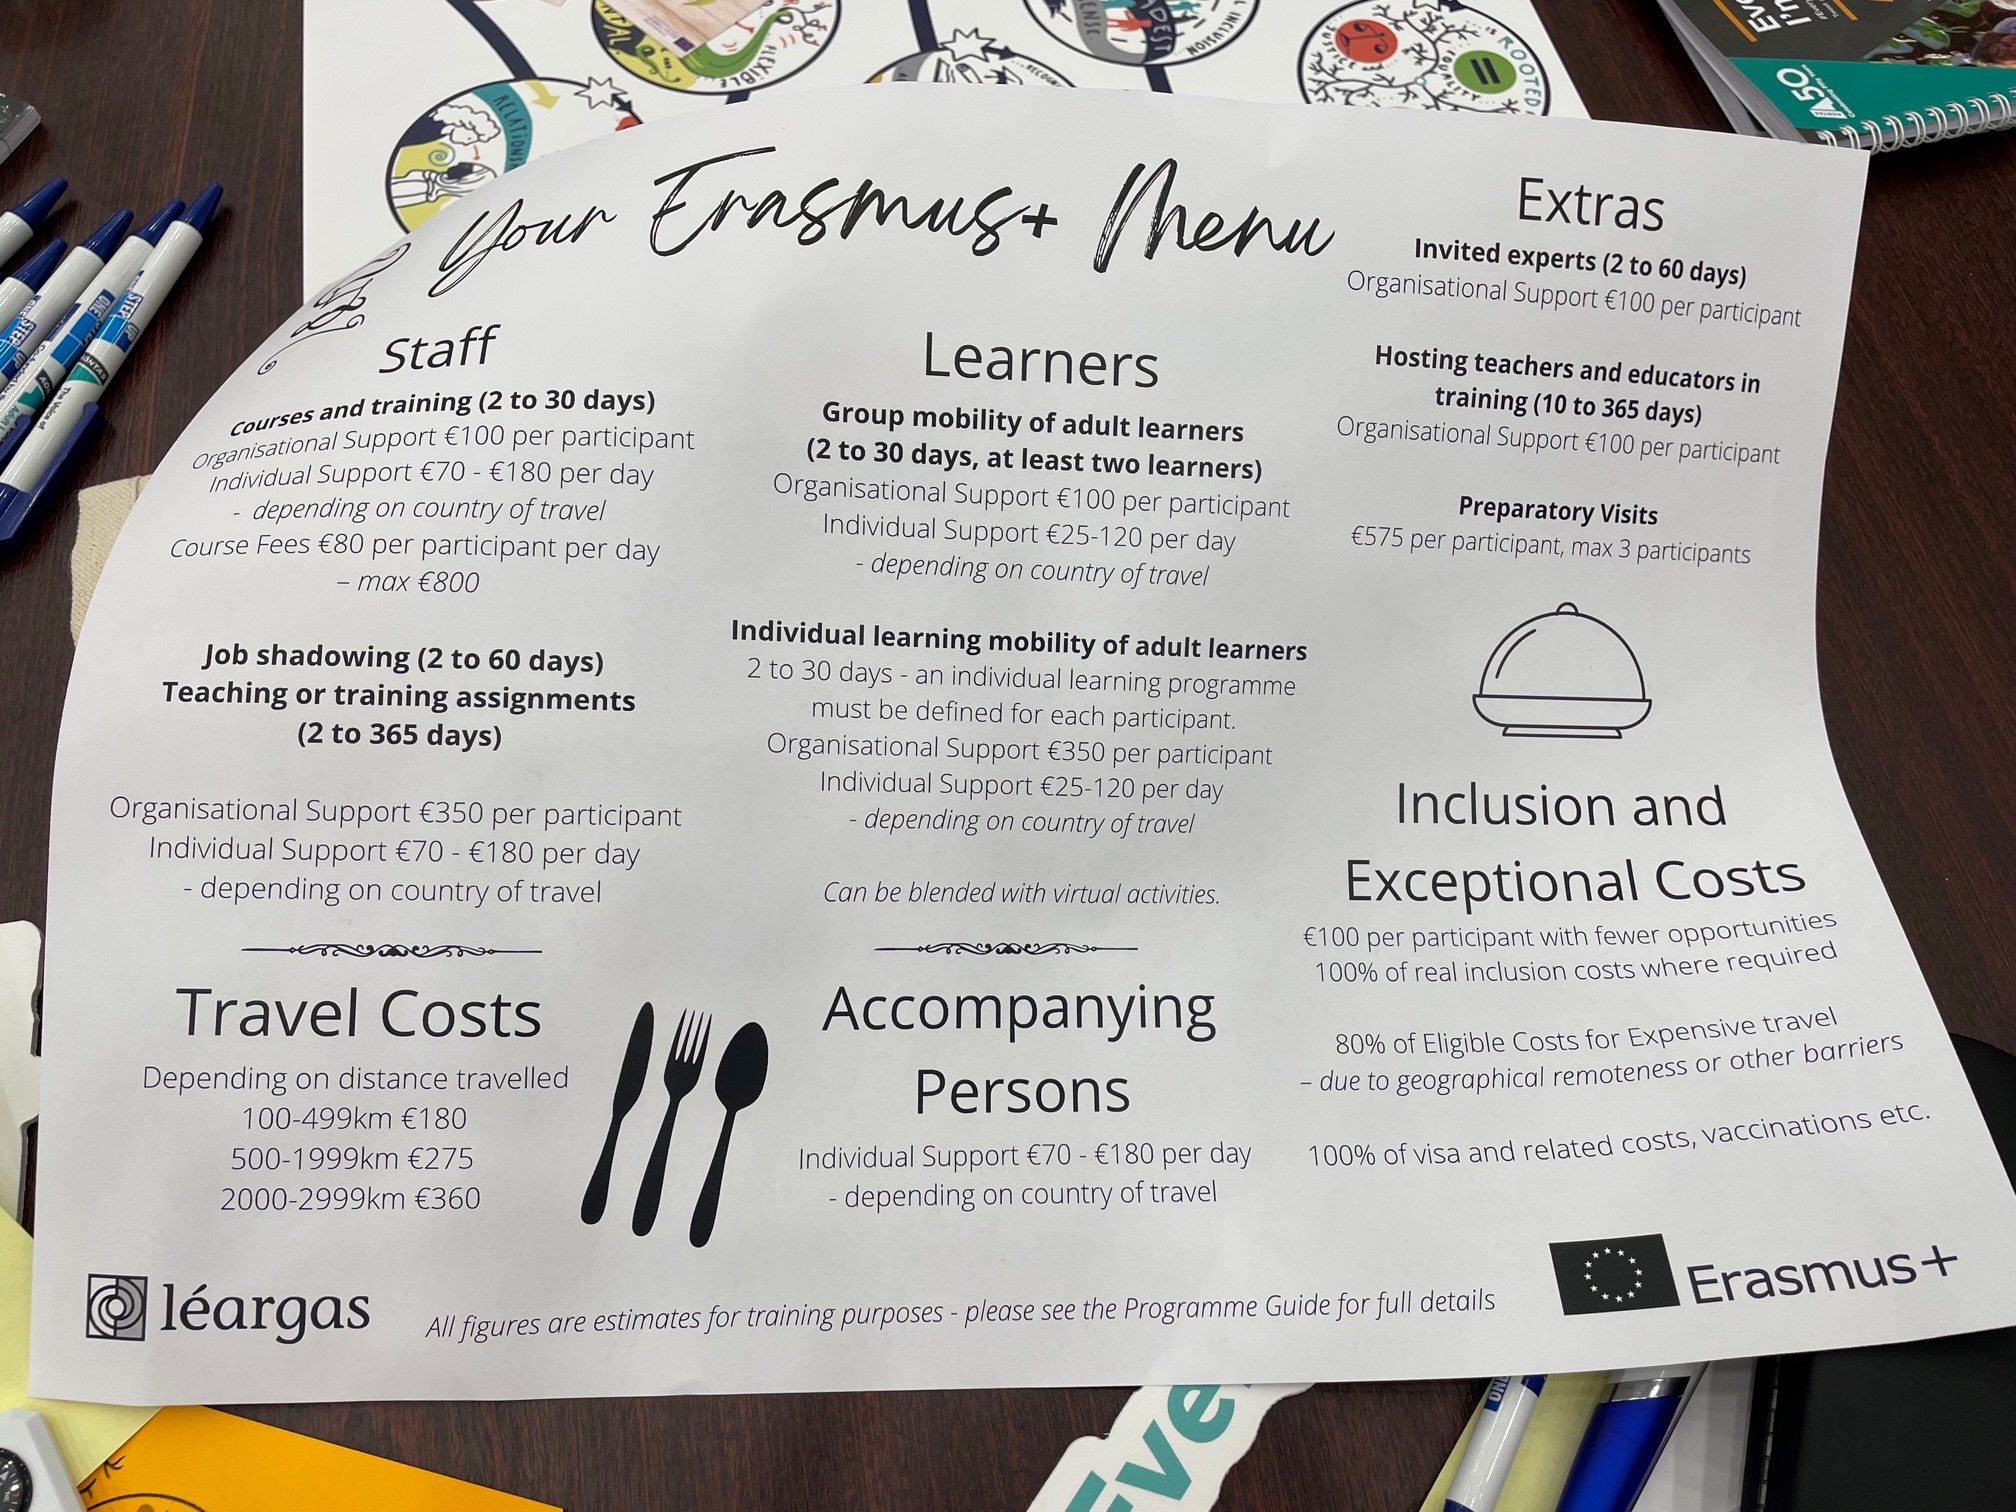 RELATIONS
FLEXIBLE
SENSE.
INCLUSION
JUSTICE and
EQUALITY
ROOTED
I'm
A50
Your Erasmus+ Menu
Staff
Courses and training (2 to 30 days)
Organisational Support €100 per participant
Individual Support €70 - €180 per day
- depending on country of travel
Course Fees €80 per participant per day
– max €800
Job shadowing (2 to 60 days)
Teaching or training assignments
(2 to 365 days)
Organisational Support €350 per participant
Individual Support €70 - €180 per day
- depending on country of travel
Travel Costs
Depending on distance travelled
100-499km €180
500-1999km €275
2000-2999km €360
Learners
Group mobility of adult learners
(2 to 30 days, at least two learners)
Organisational Support €100 per participant
Individual Support €25-120 per day
- depending on country of travel
Individual learning mobility of adult learners
2 to 30 days - an individual learning programme
must be defined for each participant.
Organisational Support €350 per participant
Individual Support €25-120 per day
- depending on country of travel
Can be blended with virtual activities.
Accompanying
Persons
Individual Support €70 - €180 per day
- depending on country of travel
Extras
Invited experts (2 to 60 days)
Organisational Support €100 per participant
Hosting teachers and educators in
training (10 to 365 days)
Organisational Support €100 per participant
Preparatory Visits
€575 per participant, max 3 participants
Inclusion and
Exceptional Costs
€100 per participant with fewer opportunities
100% of real inclusion costs where required
80% of Eligible Costs for Expensive travel
– due to geographical remoteness or other barriers
100% of visa and related costs, vaccinations etc.
léargas
All figures are estimates for training purposes - please see the Programme Guide for full details
Erasmus+
ONE
STEP
UP
AONTAS
The Voice of
Eve